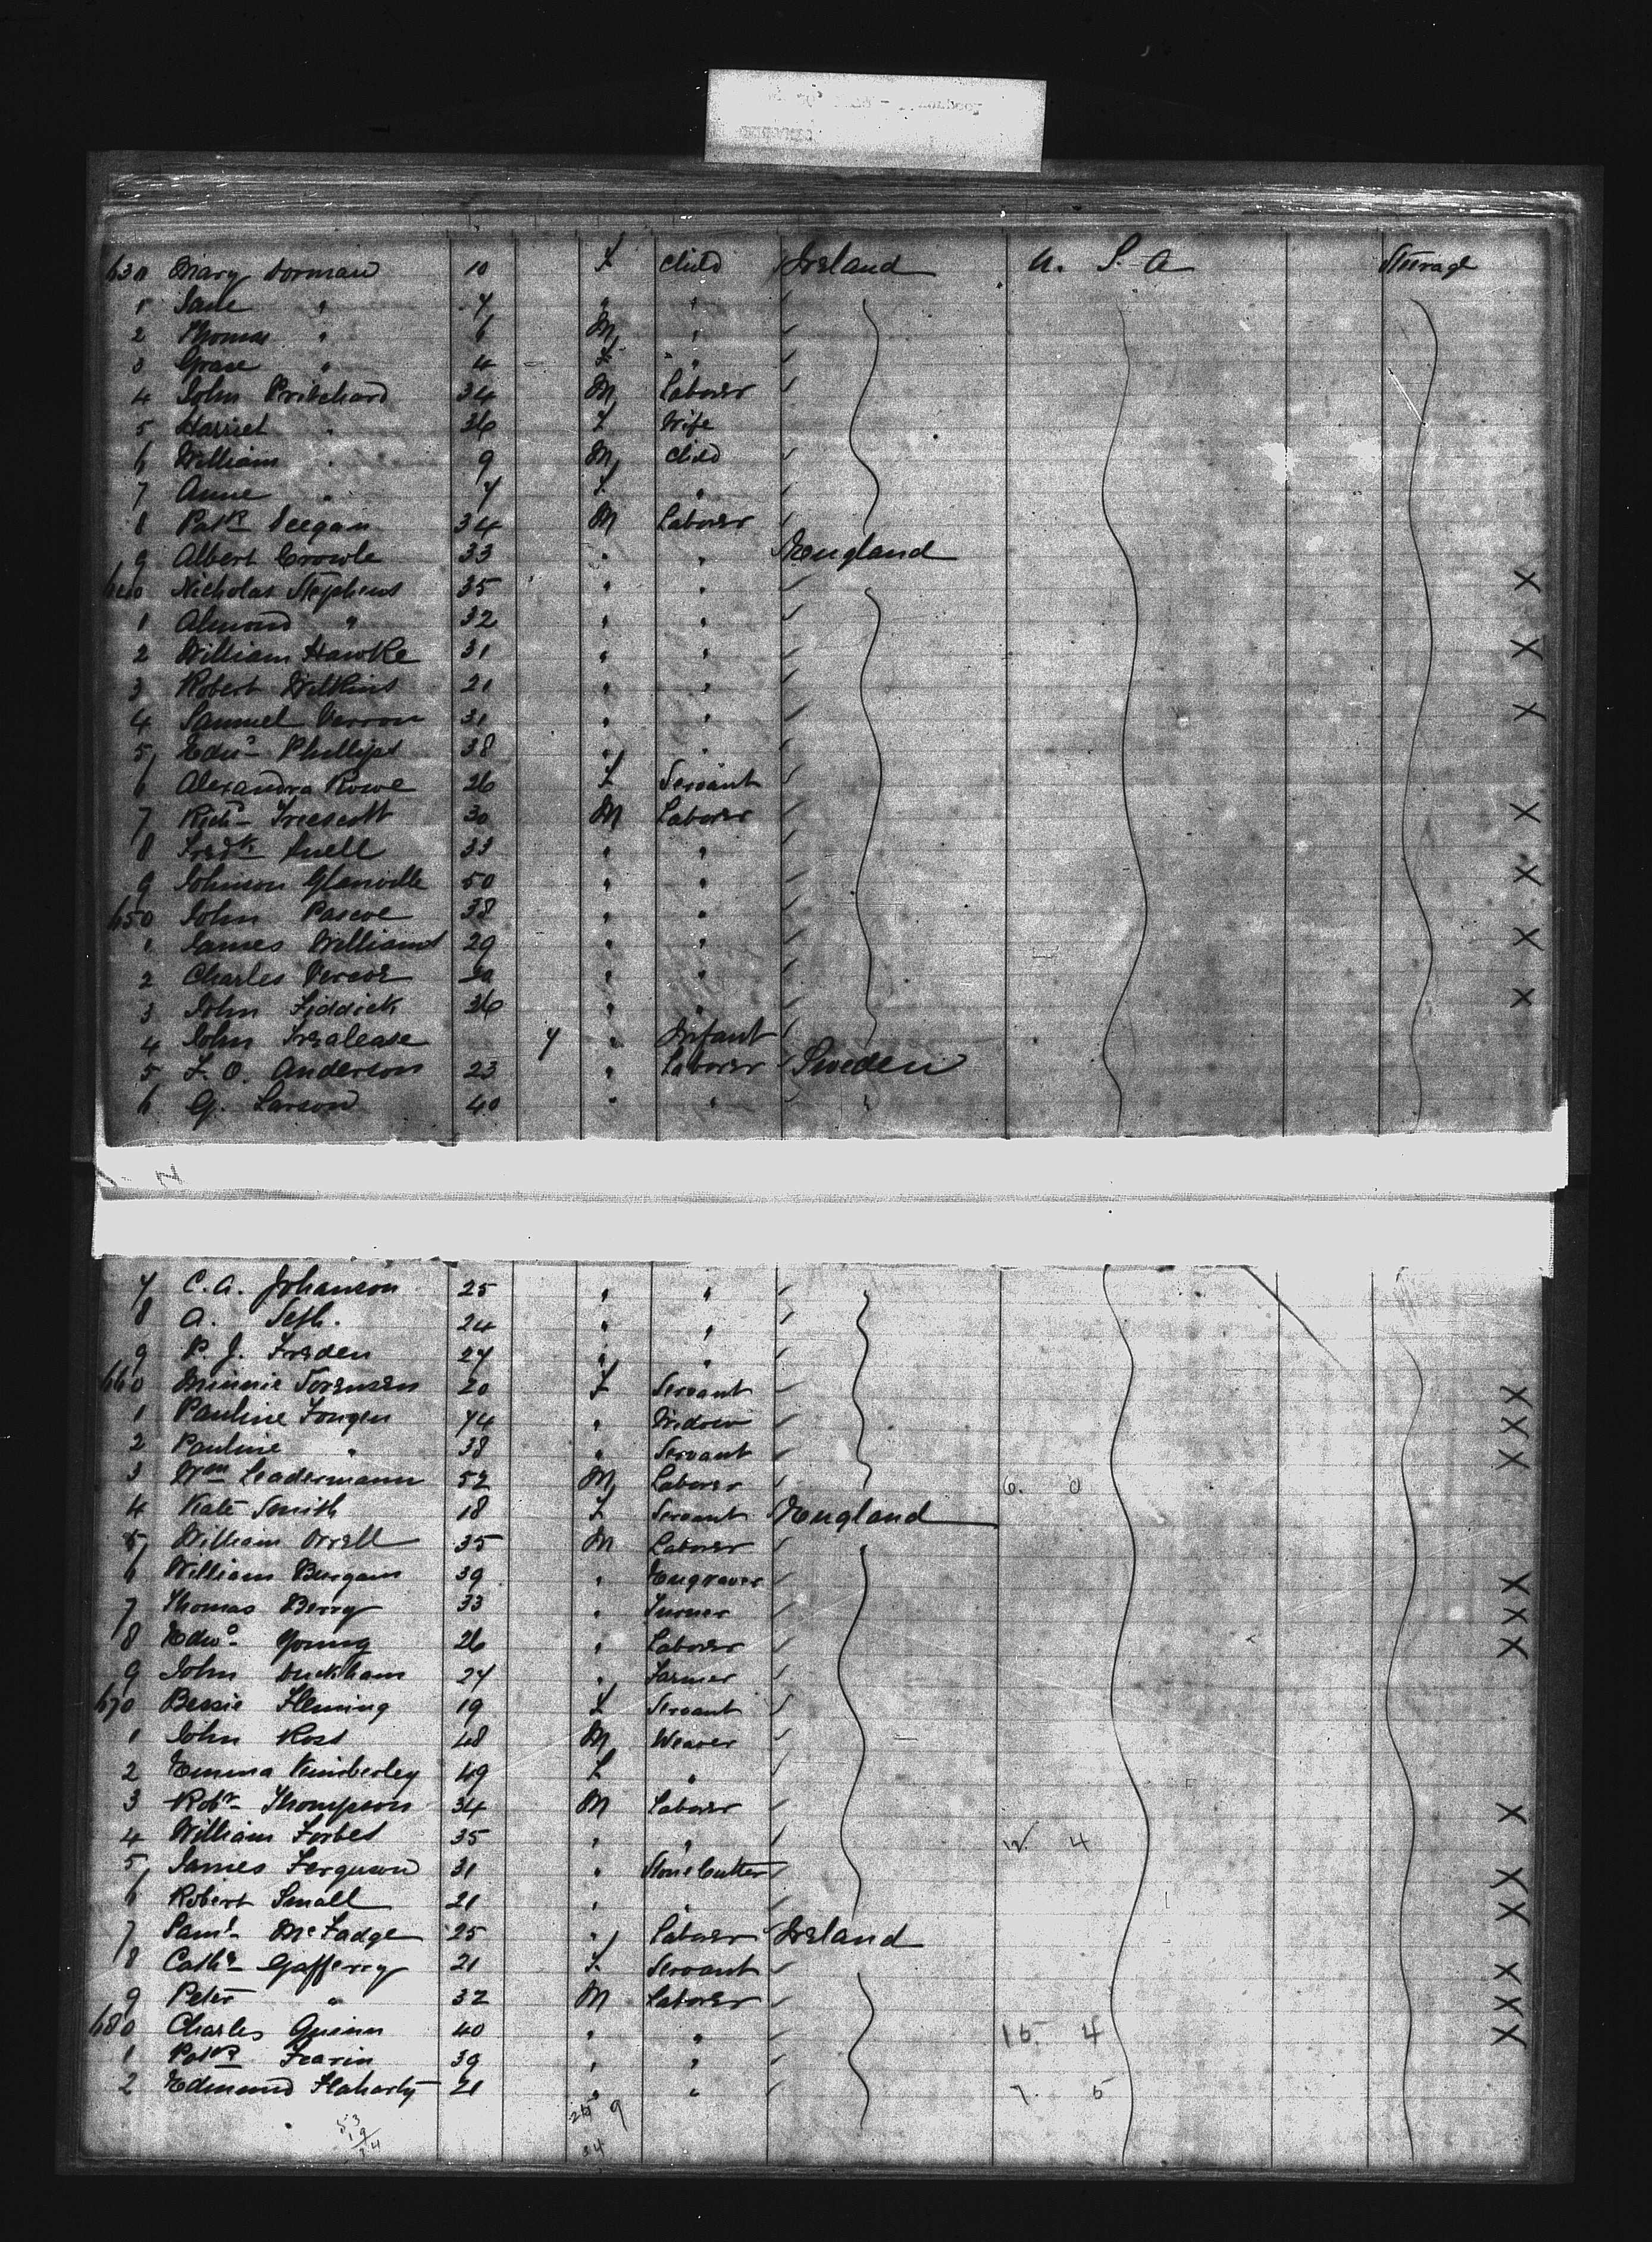 630 Mary Dorman 10 F Child Ireland U. S. A Steerage
1 Jane " 7 " "
2 Thomas " 6 M "
3 Grace " 4 F "
4 John Pritchard 34 M Laborer
5 Harriet " 36 F Wife
6 William " 9 M Child
7 Anne " 7 F "
8 Patk Deegan 34 M Laborer
9 Albert Crowle 33 " " England
640 Nicholas Stephens 35 " " X
1 Almond " 32 " "
2 William Hawke 31 " " X
3 Robert Wilkins 21 " "
4 Samuel Verron 31 " " X
5 Edwd Phillips 38 " "
6 Alexandra Rowe 26 F Servant
7 Richd Truscott 30 M Laborer X
8 Fredk Snell 33 " "
9 Johnson Glanville 50 " " X
650 John Pascoe 38 " "
1 James Williams 29 " " X
2 Charles Vercoe " "
3 John Fiddick 36 " " X
4 John Trealease 7 " Infant
5 F. O. Anderson 23 " Laborer Sweden
6 G. Larson 40 " " "
7 C. A. Johanson 25 " "
8 A. Seth. 24 " "
9 P. J. Freden 27 " "
660 Minnie Sorensen 20 F Servant X
1 Pauline Fongen 74 " Widow X
2 Pauline " 38 " Servant X
3 Wm Leadermann 52 M Laborer 6. 0
4 Kate Smith 18 F Servant England
5 William Orrell 35 M Laborer
6 William Burgam 39 " Engraver X
7 Thomas Berry 33 " Turner X
8 Edwd Young 26 " Laborer X
9 John Duckham 27 " Farmer
670 Bessie Fleming 19 F Servant
1 John Ross 48 M Weaver
2 Emma Kimberley 49 F "
3 Robt Thompson 34 M Laborer X
4 William Forbes 35 " " 12. 4
5 James Ferguson 31 " Stone Cutter X
6 Robert Small 21 " " X
7 Saml McFadge 25 " Laborer Ireland
8 Cathe Gafferry 21 F Servant X
9 Peter " 32 M Laborer X
680 Charles Quinn 40 " " 15. 4 X
1 Patk Fearin 39 " "
2 Edmund Flaharty 21 " " 7. 5
53
19
34
25 9
34